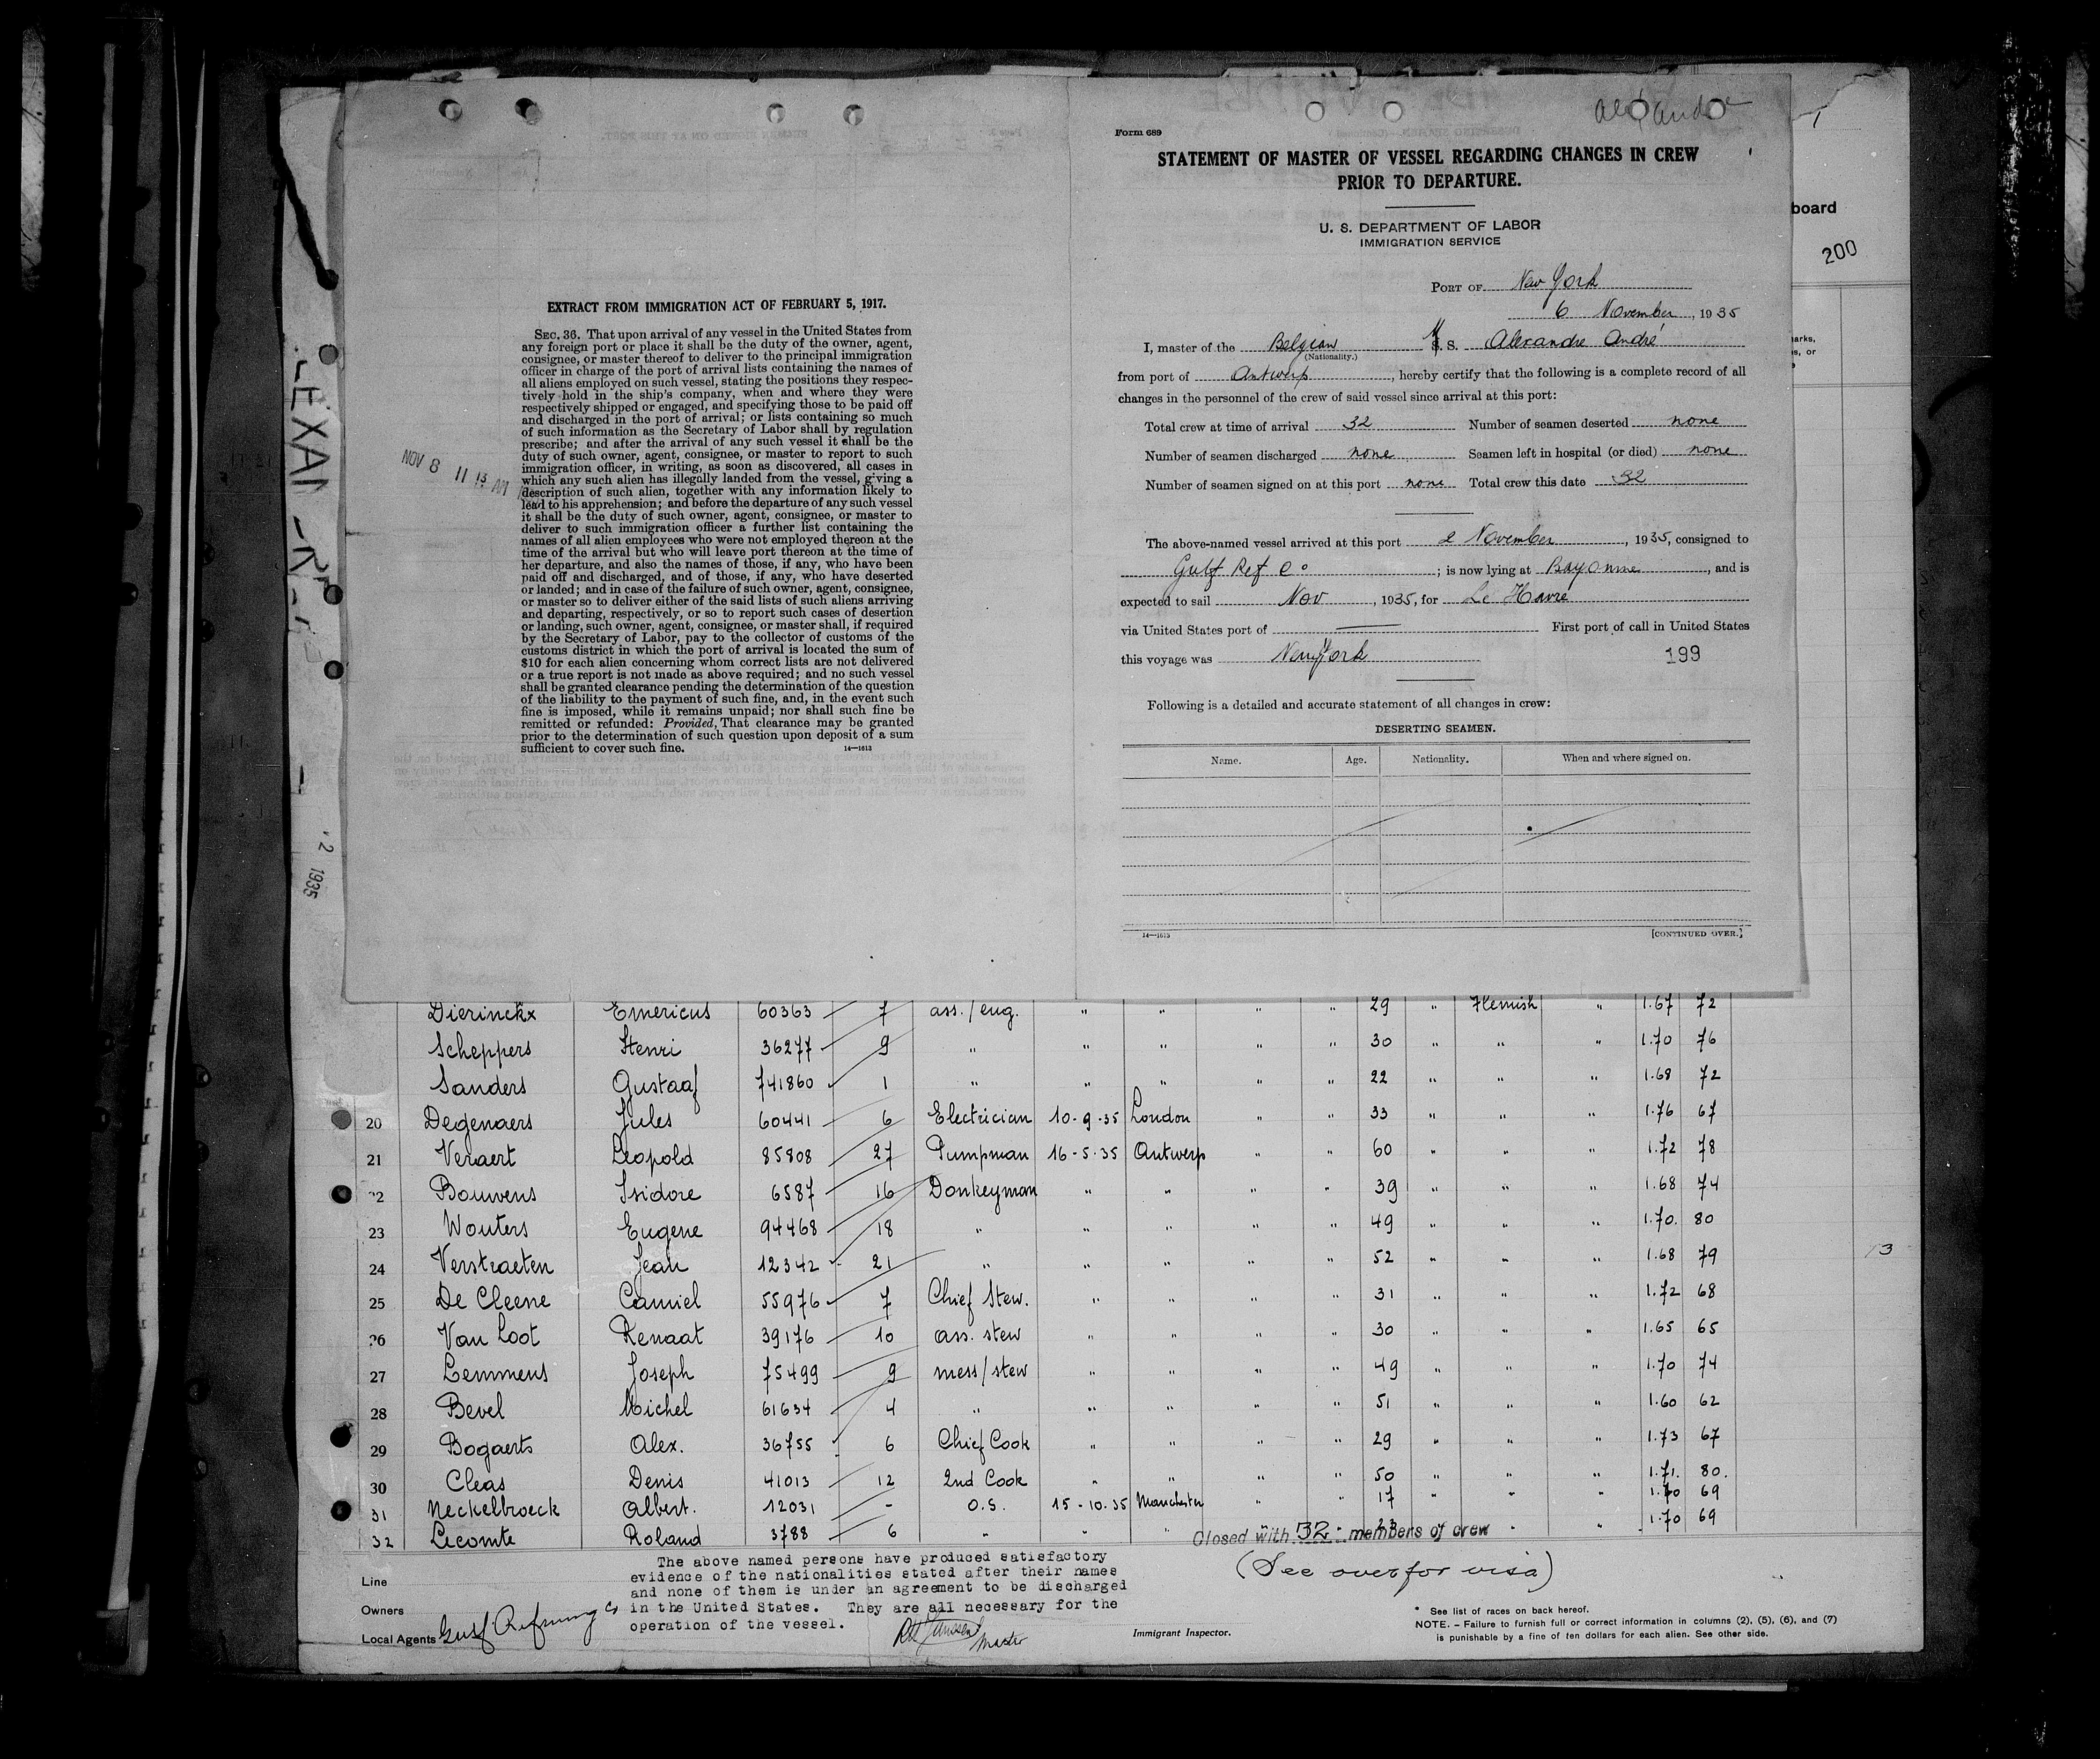 EXTRACT FROM IMMIGRATION ACT OF FEBRUARY 5, 1917.
SEC. 36. That upon arrival of any vessel in the United States from
any foreign port or place it shall be the duty of the owner, agent,
consignee, or master thereof to deliver to the principal immigration
officer in charge of the port of arrival lists containing the names of
all aliens employed on such vessel, stating the positions they respec-
tively hold in the ship's company, when and where they were
respectively shipped or engaged, and specifying those to be paid off
and discharged in the port of arrival; or lists containing so much
of such information as the Secretary of Labor shall by regulation
prescribe; and after the arrival of any such vessel it shall be the
duty of such owner, agent, consignee, or master to report to such
immigration officer, in writing, as soon as discovered, all cases in
which any such alien has illegally landed from the vessel, giving a
description of such alien, together with any information likely to
lead to his apprehension; and before the departure of any such vessel
it shall be the duty of such owner, agent, consignee, or master to
deliver to such immigration officer a further list containing the
names of all alien employees who were not employed thereon at the
time of the arrival but who will leave port thereon at the time of
her departure, and also the names of those, if any, who have been
paid off and discharged, and of those, if any, who have deserted
or landed; and in case of the failure of such owner, agent, consignee,
or master so to deliver either of the said lists of such aliens arriving
and departing, respectively, or so to report such cases of desertion
or landing, such owner, agent, consignee, or master shall, if required
by the Secretary of Labor, pay to the collector of customs of the
customs district in which the port of arrival is located the sum of
$10 for each alien concerning whom correct lists are not delivered
or a true report is not made as above required; and no such vessel
shall be granted clearance pending the determination of the question
of the liability to the payment of such fine, and, in the event such
fine is imposed, while it remains unpaid; nor shall such fine be
remitted or refunded: Provided, That clearance may be granted
prior to the determination of such question upon deposit of a sum
sufficient to cover such fine.
14—1613
NOV 8 11 13 AM
2 1935
Form 689
STATEMENT OF MASTER OF VESSEL REGARDING CHANGES IN CREW
PRIOR TO DEPARTURE.
U. S. DEPARTMENT OF LABOR
IMMIGRATION SERVICE
PORT OF New York
6 November, 1935
I, master of the Belgian M S. Alexandre André
(Nationality.)
from port of Antwerp, hereby certify that the following is a complete record of all
changes in the personnel of the crew of said vessel since arrival at this port:
Total crew at time of arrival 32 Number of seamen deserted none
Number of seamen discharged none Seamen left in hospital (or died) none
Number of seamen signed on at this port none Total crew this date 32
The above-named vessel arrived at this port 2 November, 1935, consigned to
Gulf Ref Co; is now lying at Bayonne, and is
expected to sail Nov, 1935, for Le Havre
via United States port of — First port of call in United States
this voyage was New York
199
Following is a detailed and accurate statement of all changes in crew:
DESERTING SEAMEN.
Name. Age. Nationality. When and where signed on.
14—1613 [CONTINUED OVER.]
board
200
Dierinckx Emericus 60363 7 ass./eng. " " " " 29 " Flemish " 1.67 72
Scheppers Henri 36277 9 " " " " " 30 " " " 1.70 76
Sanders Gustaaf 741860 1 " " " " " 22 " " " 1.68 72
20 Degenaers Jules 60441 6 Electrician 10-9-35 London " " 33 " " " 1.76 67
21 Veraert Leopold 85808 27 Pumpman 16-5-35 Antwerp " " 60 " " " 1.72 78
22 Bouwens Isidore 6587 16 Donkeyman " " " " 39 " " " 1.68 74
23 Wouters Eugene 94468 18 " " " " " 49 " " " 1.70. 80
24 Verstraeten Jean 12342 21 " " " " " 52 " " " 1.68 79
13
25 De Cleene Camiel 55976 7 Chief Stew. " " " " 31 " " " 1.72 68
26 Van Loot Renaat 39176 10 ass. stew " " " " 30 " " " 1.65 65
27 Lemmens Joseph 75499 9 mess/stew " " " " 49 " " " 1.70 74
28 Bevel Michel 61634 4 " " " " " 51 " " " 1.60 62
29 Bogaerts Alex. 36755 6 Chief Cook " " " " 29 " " " 1.73 67
30 Cleas Denis 41013 12 2nd Cook " " " " 50 " " " 1.71. 80.
31 Neckelbroeck Albert. 12031 - O.S. 15-10-35 Manchester " " 17 " " " 1.70 69
32 Lecomte Roland 3788 6 " " " " " 23 " " " 1.70 69
Closed with 32 members of crew
(See over for visa)
The above named persons have produced satisfactory
evidence of the nationalities stated after their names
and none of them is under an agreement to be discharged
in the United States. They are all necessary for the
operation of the vessel.
Line
Owners
Local Agents Gulf Refining Co
Master
Immigrant Inspector.
* See list of races on back hereof.
NOTE. - Failure to furnish full or correct information in columns (2), (5), (6), and (7)
is punishable by a fine of ten dollars for each alien. See other side.